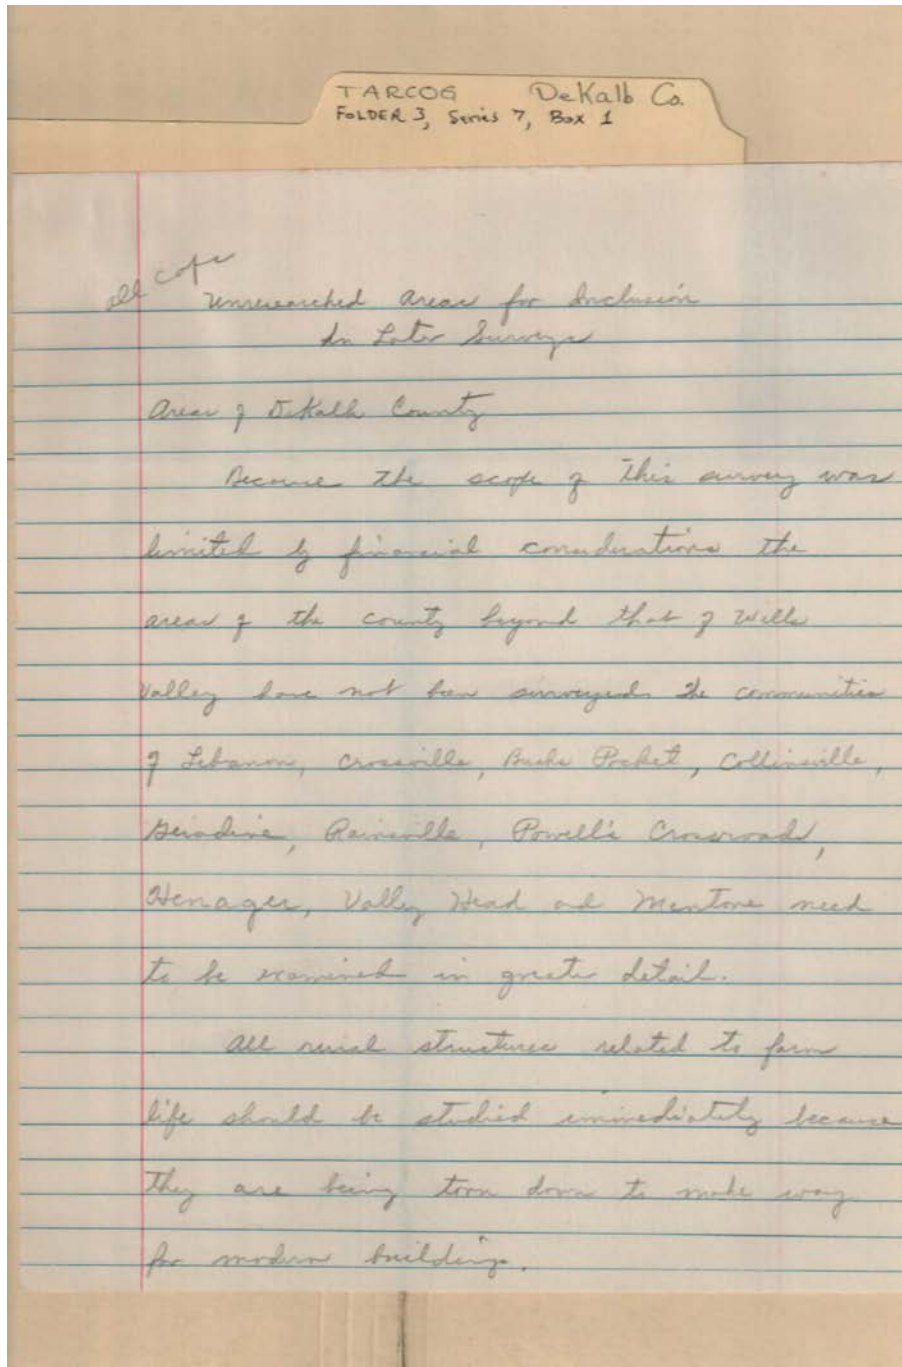 TARCOG DeKalb Co.
FOLDER 3, Series 7, Box 1
all
Unresearched Areas for Inclusion
In Later Surveys
Areas of DeKalb County
Because the scope of this survey was
limited by financial considerations the
areas of the county beyond that of Wills
Valley have not been surveyed. The communities
of Lebanon, Crossville, Bucks Pocket, Collinsville,
Geradine, Rainsville, Powell's Crossroad,
Henager, Valley Head and Mentone need
to be examined in greater detail.
All rurial structures related to farm
life should be studied immediately because
they are being torn down to make way
for modern buildings.